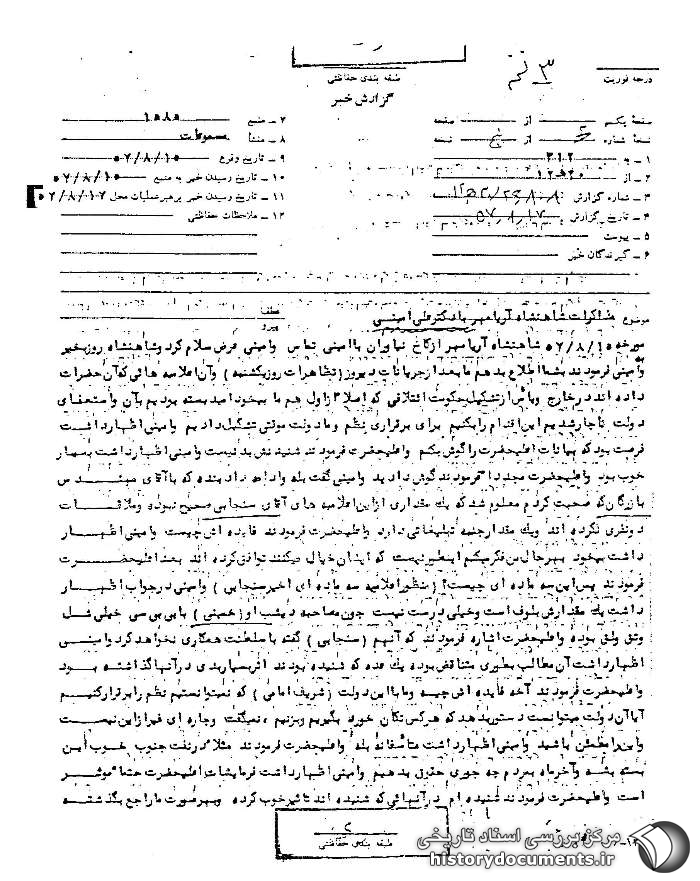 طبقه بندی حفاظتی
درجه فوریت
گزارش خبر
صفحه یکم از صفحه
نسخه شماره از نسخه
۱ - به ۳۱۲
۲ - از
۳ - شماره گزارش
۴ - تاریخ گزارش ۵۷/۸/۱۷
۵ - پیوست
۶ - گیرندگان خبر
۷ - منبع ۱۰۸۰
۸ - منشأ مسموعات
۹ - تاریخ وقوع ۵۷/۸/۱۵
۱۰ - تاریخ رسیدن خبر به منبع ۵۷/۸/۱۵
۱۱ - تاریخ رسیدن خبر برهبر عملیات محل ۵۷/۸/۱۷
۱۲ - ملاحظات حفاظتی
موضوع مذاکرات شاهنشاه آریامهر با دکتر علی امینی
عطف
پیرو
مورخه ۵۷/۸/۱۵ شاهنشاه آریامهر از کاخ نیاوران با امینی تماس و امینی عرض سلام کرد و شاهنشاه روز بخیر
و امینی فرمودند بشما اطلاع بدهم ما بعد از جریانات دیروز (تظاهرات روز یکشنبه) و آن اعلامیه هائی که آن حضرات
داده اند در خارج و یأس از تشکیل حکومت ائتلافی که اصلا از اول هم ما بیخود امید بسته بودیم بآن و استعفای
دولت ناچار شدیم این اقدام را بکنیم برای برقراری نظم و ما دولت موقتی تشکیل دادیم و امینی اظهار داشت
فرصت بود که بیانات اعلیحضرت را گوش بکنم و اعلیحضرت فرمودند شنیدنش بد نیست و امینی اظهار داشت بسیار
خوب بود و اعلیحضرت مجددا فرمودند گوش دادید و امینی گفت بله و ادامه داد بنده که با آقای مهندس
بازرگان که صحبت کردم معلوم شد که یک مقداری از این اعلامیه های آقای سنجابی صحیح نبوده و ملاقات
دو نفری نکرده اند و یک مقدار جنبه تبلیغاتی دارد و اعلیحضرت فرمودند فایده اش چیست و امینی اظهار
داشت بیخود بهر حال من فکر میکنم اینطور نیست که ایشان خیال میکنند توافق کرده اند بعد اعلیحضرت
فرمودند پس این سه ماده ای چیست؟ (منظور اعلامیه سه ماده ای اخیر سنجابی) و امینی در جواب اظهار
داشت یک مقدارش بلوف است و خیلی درست نیست چون مصاحبه دیشب او (خمینی) با بی بی سی خیلی شل
و تق ولق بوده و اعلیحضرت اشاره فرمودند که آنهم (سنجابی) گفته با سلطنت همکاری نخواهد کرد و امینی
اظهار داشت آن مطالب بطوری متناقض بوده یک عده که شنیده بودند اثر بسیار بدی در آنها گذاشته بود
و اعلیحضرت فرمودند آخه فایده اش چیه و ما با این دولت (شریف امامی) که نمیتوانستیم نظم را برقرار کنیم
آیا آن دولت میتوانست دستور بدهد که هر کس تکان خورد بگیریم و بزنیم ، نمیگفت و چاره ای غیر از این نیست
و این را مطمئن باشید و امینی اظهار داشت متأسفانه بله و اعلیحضرت فرمودند مثلا در نفت جنوب خوب این
بسته بشه و آخر ماه بمردم چه جوری حقوق بدهیم و امینی اظهار داشت فرمایشات اعلیحضرت حتما موثر
است و اعلیحضرت فرمودند شنیده ام در آنهائی که شنیده اند تاثیر خوب کرده و بهر صورت ما راجع بگذشته
طبقه بندی حفاظتی
مرکز بررسی اسناد تاریخی
historydocuments.ir